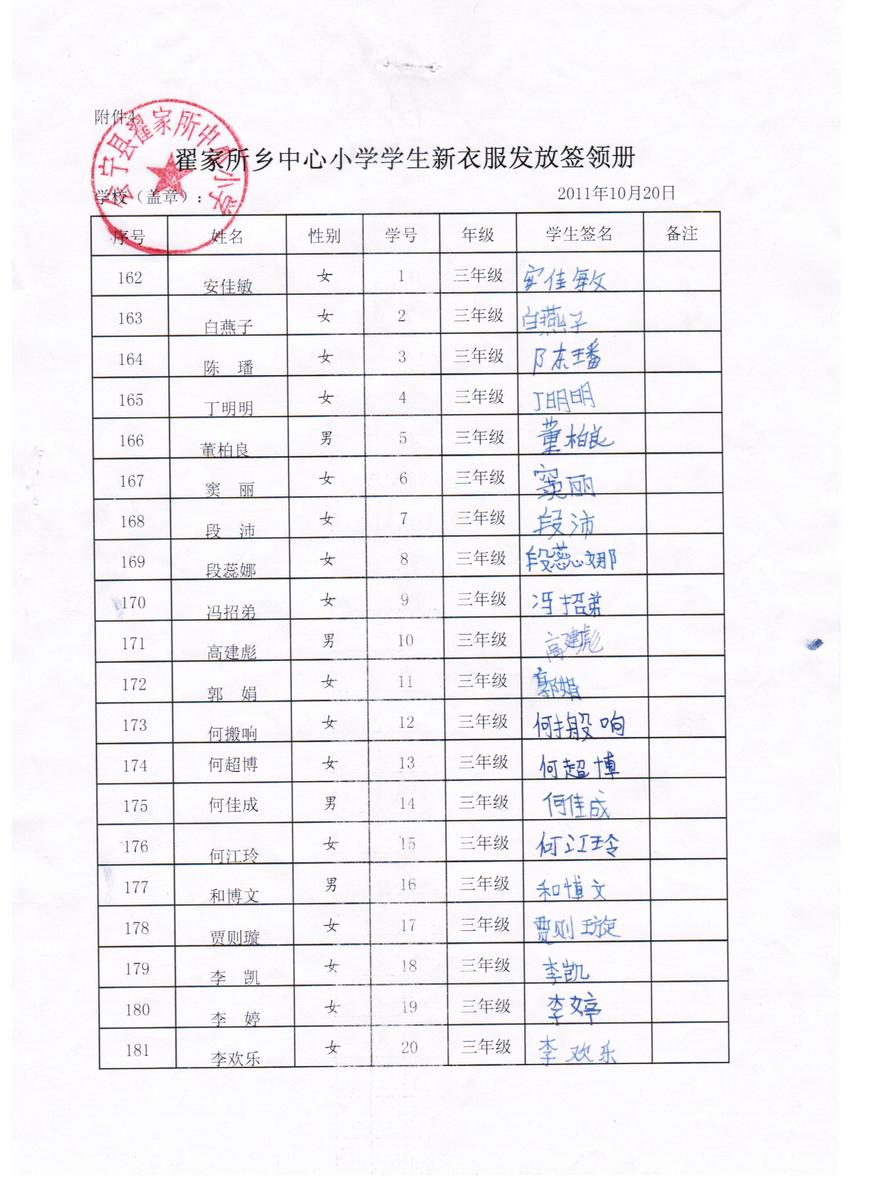 附件4
翟家所乡中心小学学生新衣服发放签领册
学校（盖章）：  2011年10月20日
会宁县翟家所中心小学
序号 姓名 性别 学号 年级 学生签名 备注
162 安佳敏 女 1 三年级 安佳敏
163 白燕子 女 2 三年级 白燕子
164 陈 璠 女 3 三年级 陈璠
165 丁明明 女 4 三年级 丁明明
166 董柏良 男 5 三年级 董柏良
167 窦 丽 女 6 三年级 窦丽
168 段 沛 女 7 三年级 段沛
169 段蕊娜 女 8 三年级 段蕊娜
170 冯招弟 女 9 三年级 冯招弟
171 高建彪 男 10 三年级 高建彪
172 郭 娟 女 11 三年级 郭娟
173 何搬响 女 12 三年级 何搬响
174 何超博 女 13 三年级 何超博
175 何佳成 男 14 三年级 何佳成
176 何江玲 女 15 三年级 何江玲
177 和博文 男 16 三年级 和博文
178 贾则璇 女 17 三年级 贾则璇
179 李 凯 女 18 三年级 李凯
180 李 婷 女 19 三年级 李婷
181 李欢乐 女 20 三年级 李欢乐